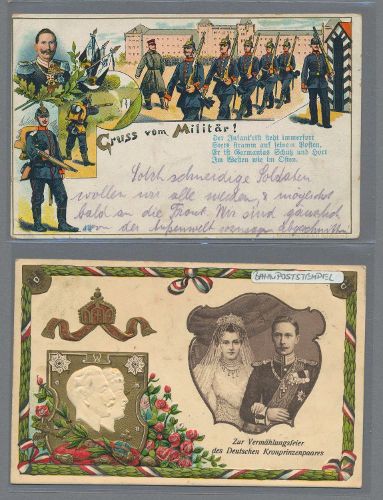 Gruss vom Militär!
Der Infant'rist steht immerfort
Stets stramm auf seinem Posten.
Er ist Germanias Schutz und Hort
Im Westen wie im Osten.
Solch schneidige Soldaten
wollen wir alle werden & möglichst
bald an die Front. Wir sind gänzlich
von der Aussenwelt sozusagen abgeschnitten
BAHNPOSTSTEMPEL
Zur Vermählungsfeier
des Deutschen Kronprinzenpaares